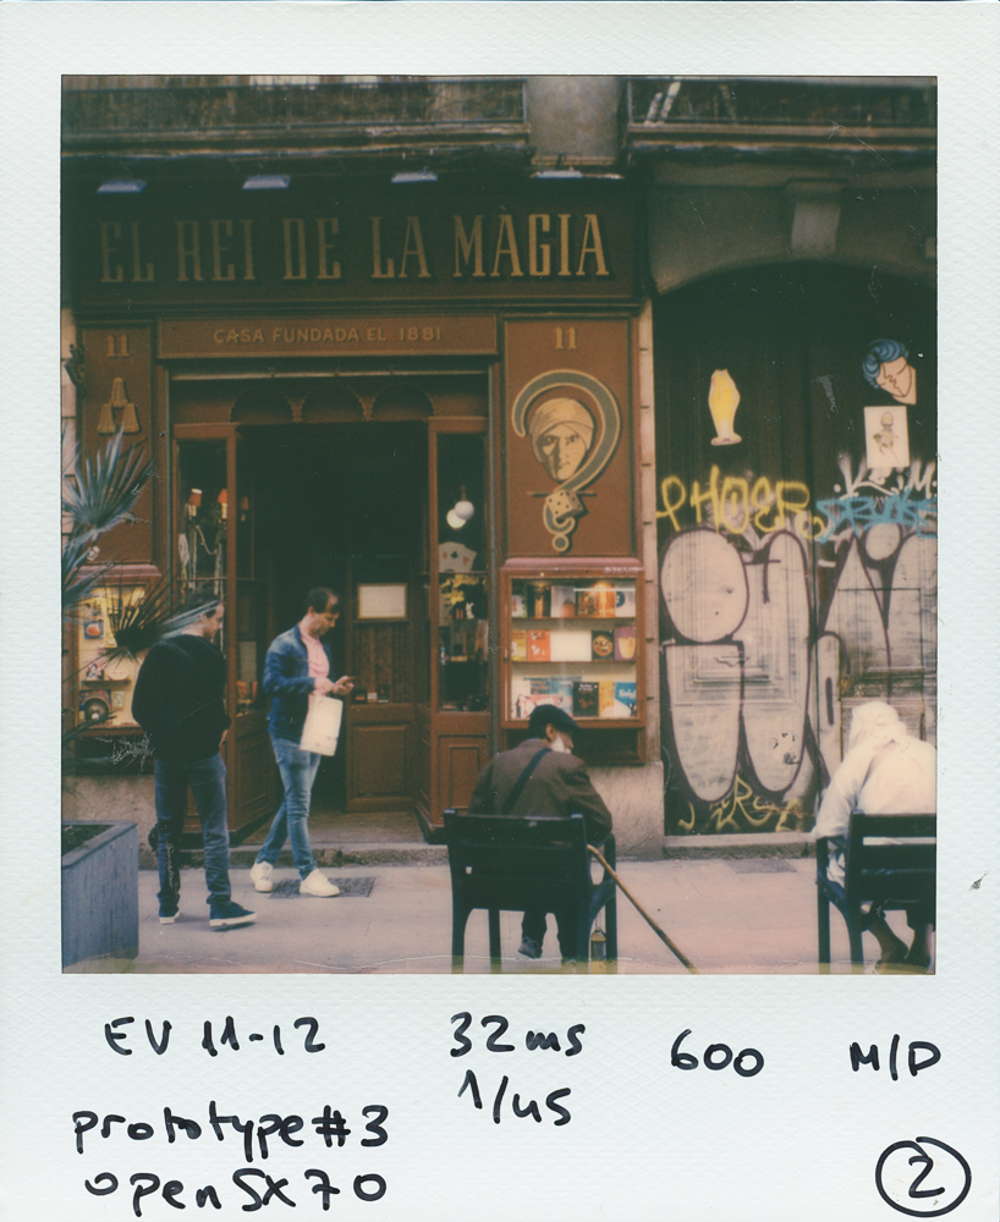 EL REI DE LA MÀGIA
CASA FUNDADA EL 1881
11
11
PHOER
EV 11-12
32ms
600
M/D
1/45
prototype#3
openSX70
2